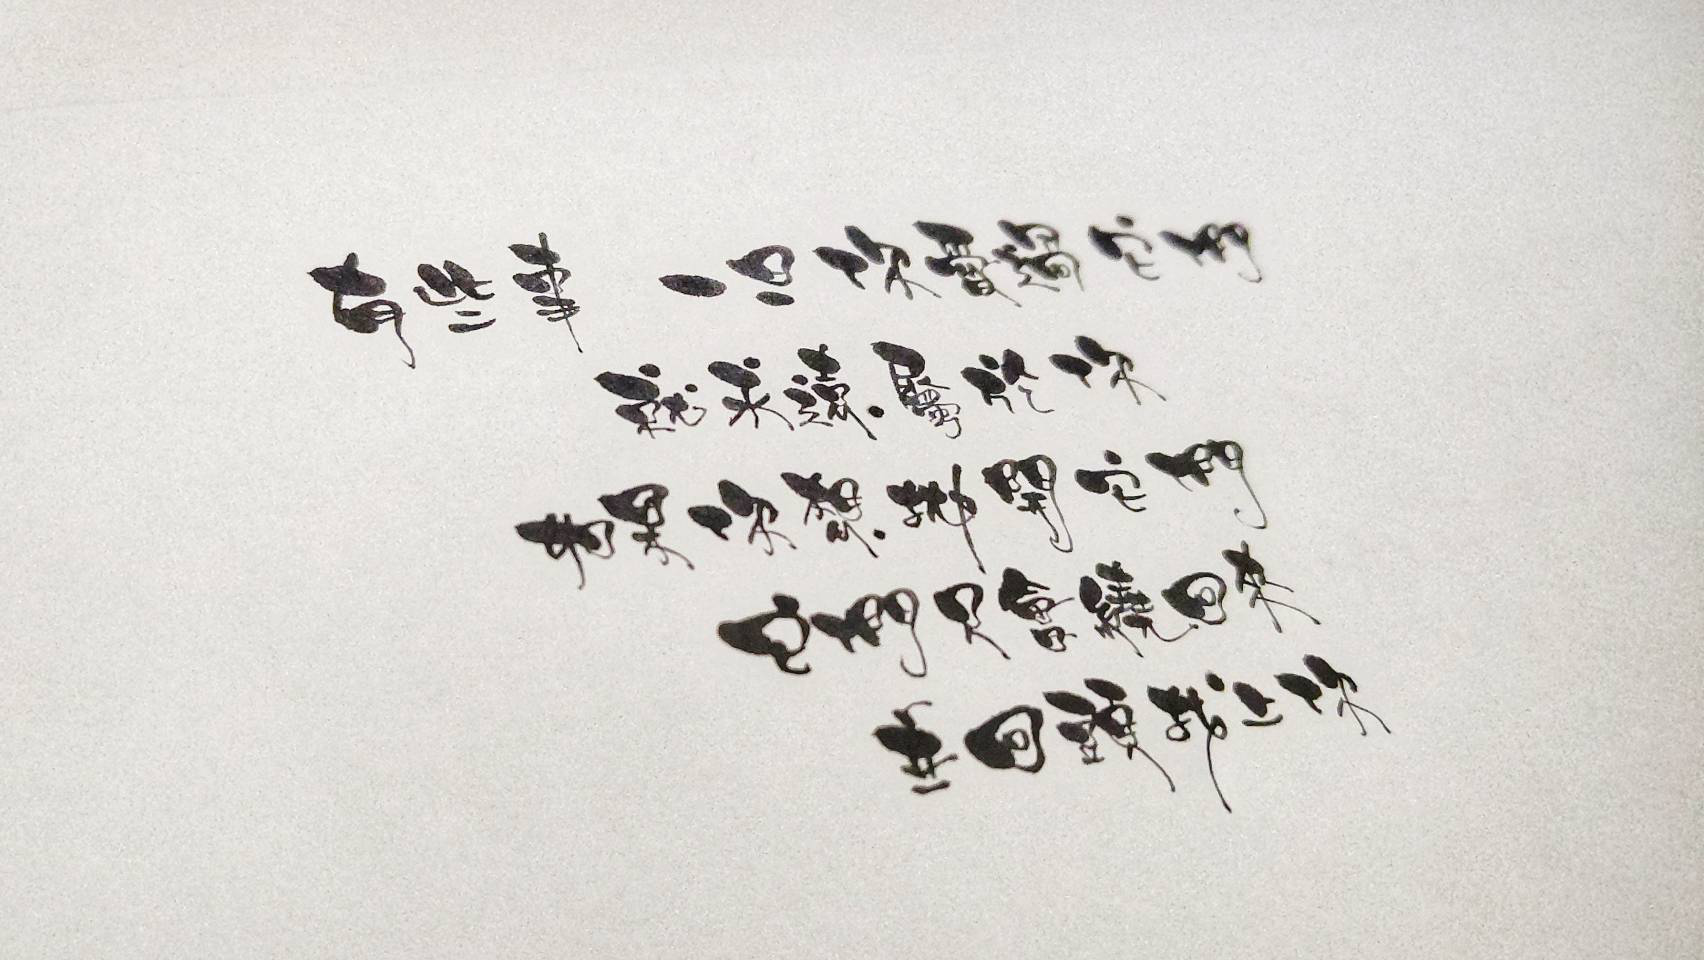 有些事 一旦你買過它們
就永遠屬於你
若果你想拋開它們
它們只會繞回來
并回頭找上你